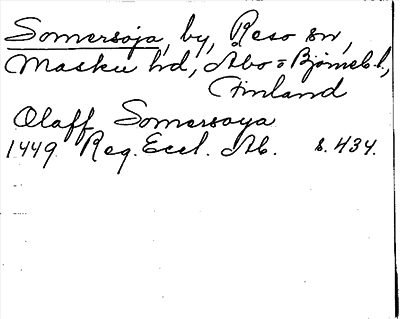 Somersoja, by, Reso sn,
Masku hd, Åbo o Björneb. l.,
Finland
Olaff Somersoya
1449 Reg. Eccl. Ab. s. 434.